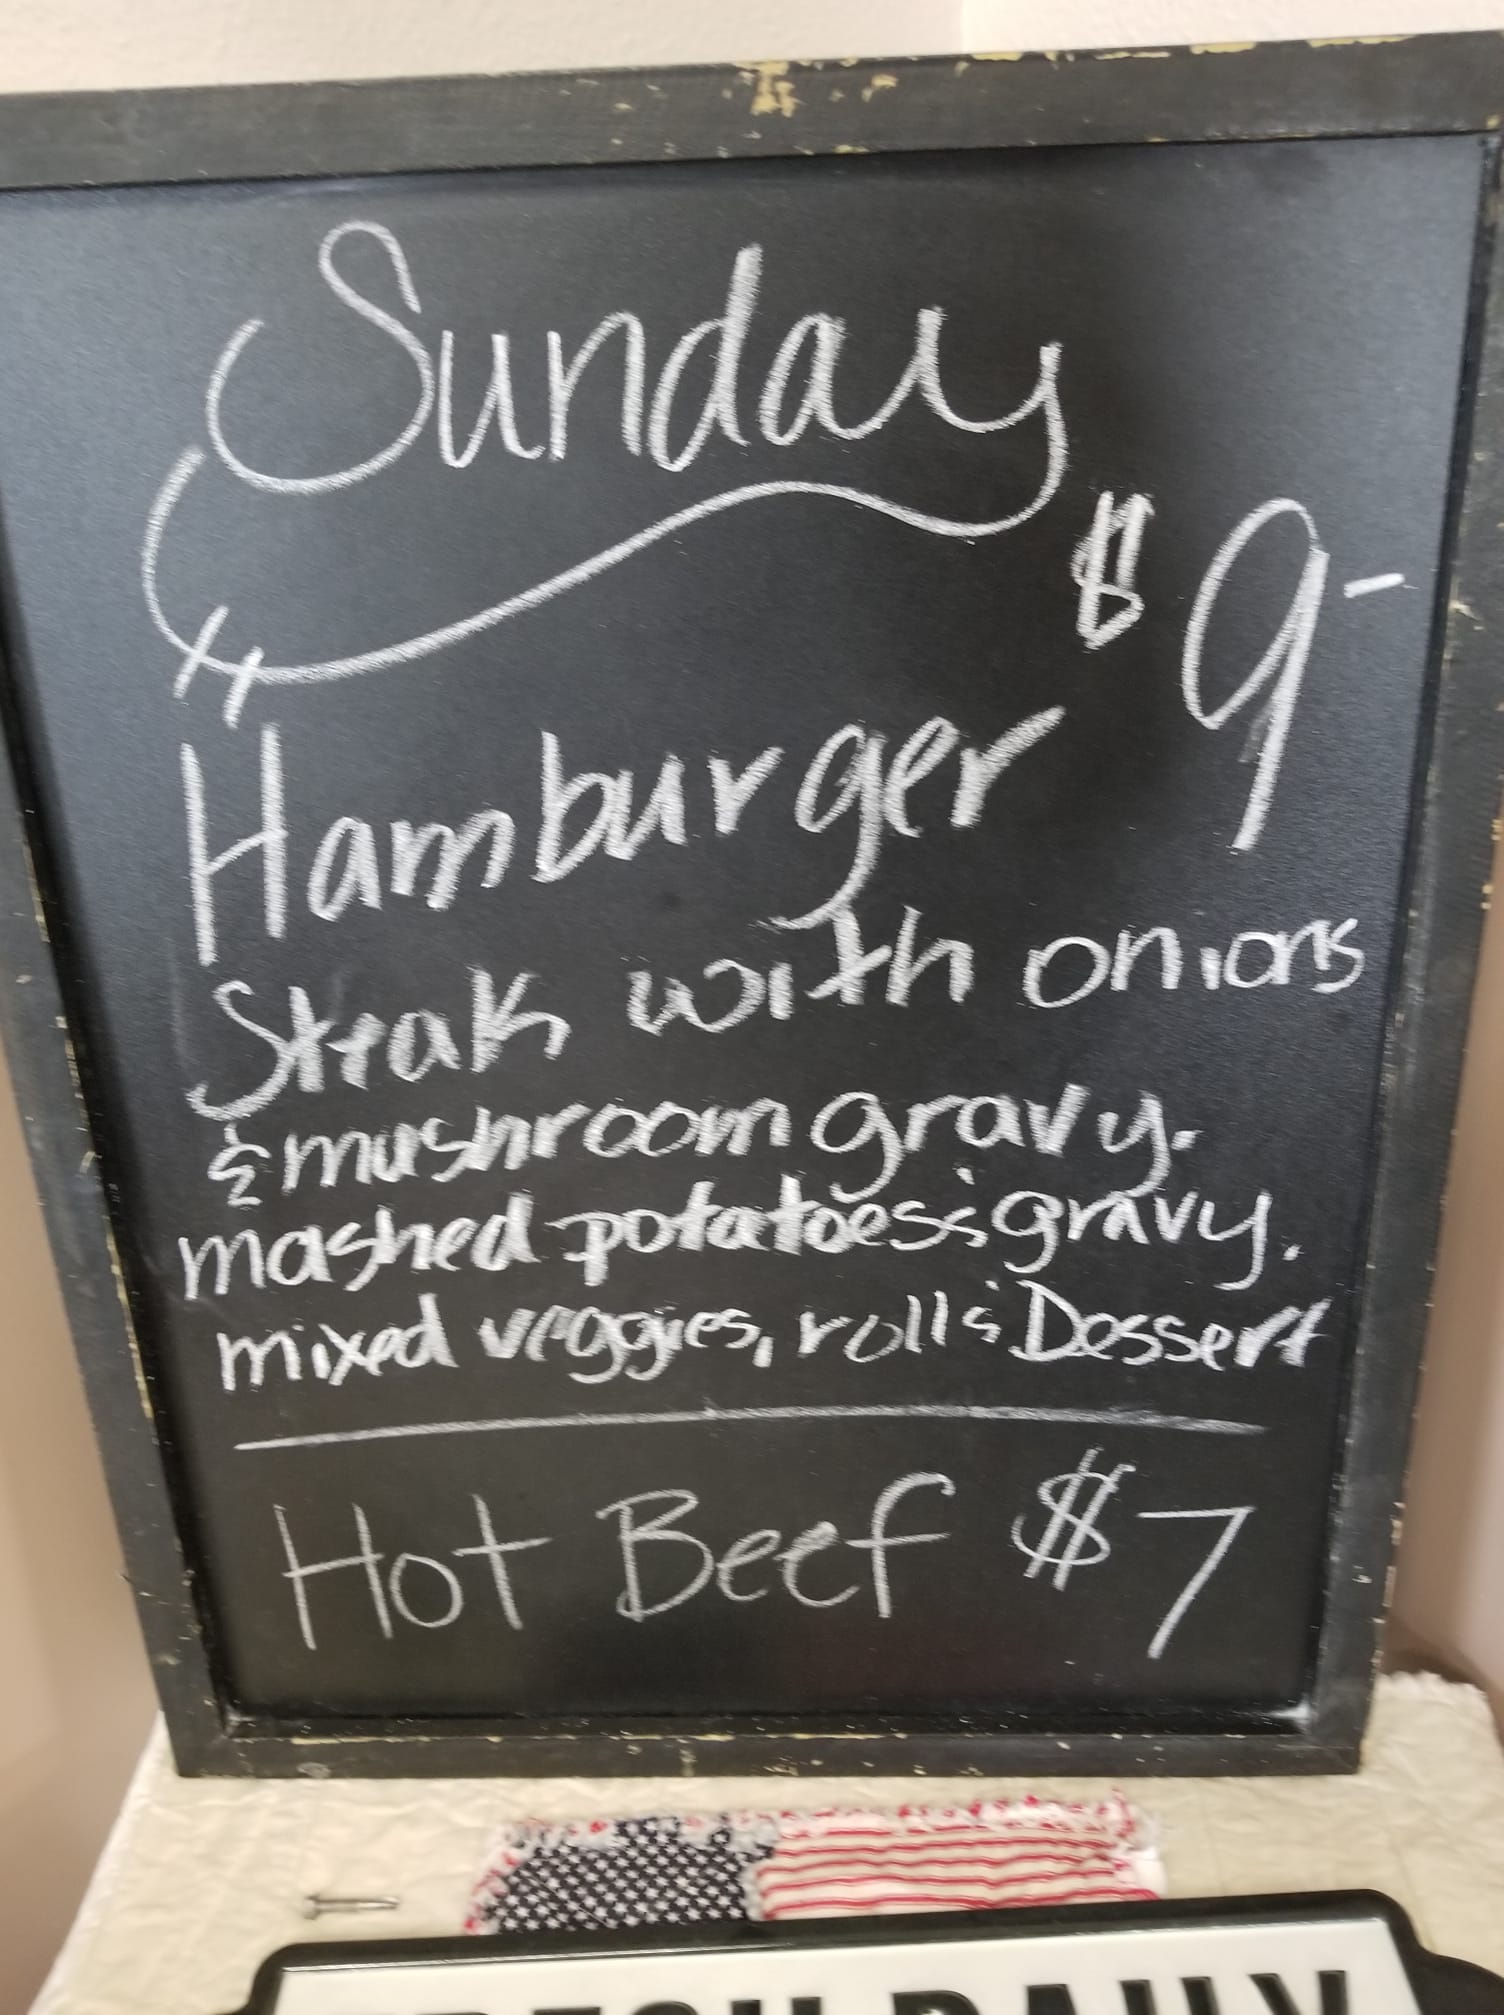 Sunday
$9-
Hamburger
Steak with onions
& mushroom gravy.
mashed potatoes & gravy.
mixed veggies, rolls & Dessert
Hot Beef $7
FRESH DAILY